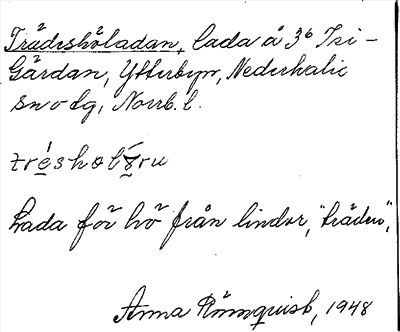 Trädeshöladan, lada å 36 Isi-
Gärdan, Ytterbyn, Nederkalix
sn o tg, Norrb. l.
Lada för hö från lindor, "träden",
Anna Rönnquist, 1948